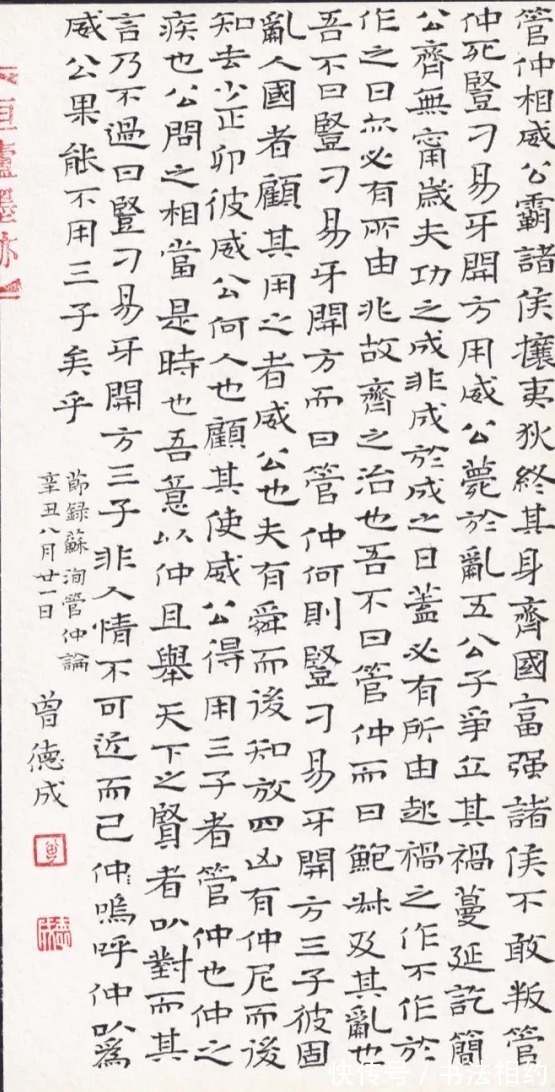 管仲相威公霸諸侯攘夷狄終其身齊國富强諸侯不敢叛管
仲死豎刁易牙開方用威公薨於亂五公子爭立其禍蔓延訖簡
公齊無甯歲夫功之成非成於成之日蓋必有所由起禍之作不作於
作之日亦必有所由兆故齊之治也吾不曰管仲而曰鮑叔及其亂也
吾不曰豎刁易牙開方而曰管仲何則豎刁易牙開方三子彼固
亂人國者顧其用之者威公也夫有舜而後知放四凶有仲尼而後
知去少正卯彼威公何人也顧其使威公得用三子者管仲也仲之
疾也公問之相當是時也吾意以仲且舉天下之賢者以對而其
言乃不過曰豎刁易牙開方三子非人情不可近而已仲嗚呼仲以爲
威公果能不用三子矣乎
節録蘇洵管仲論
辛丑八月廿一日
曾德成
快传号 / 书法相约